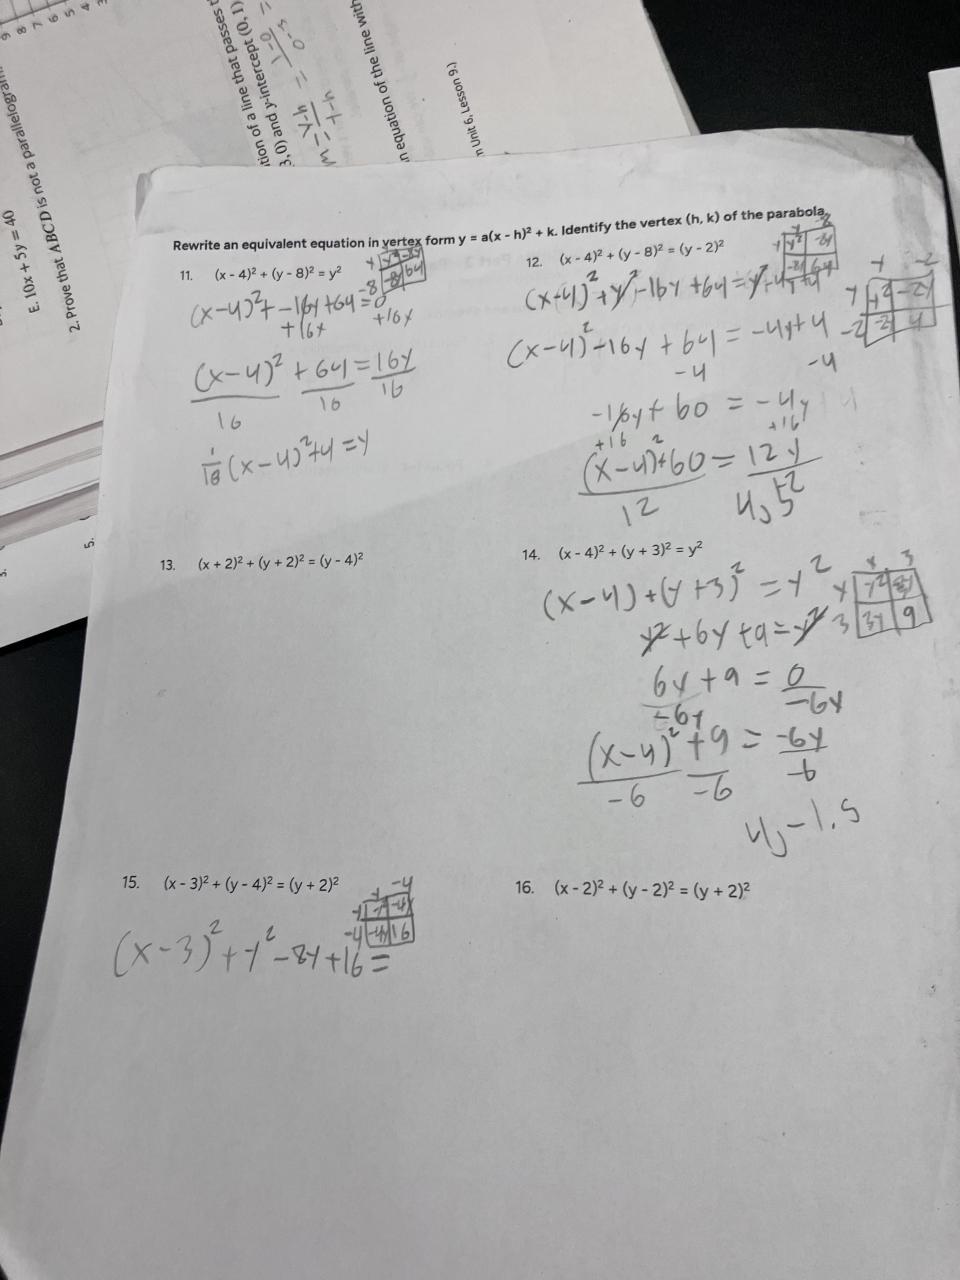 9
8
7
6
5
4
3
E. 10x + 5y = 40
2. Prove that ABCD is not a parallelogram.
5.
tion of a line that passes t
3, 0) and y-intercept (0, 1)
n equation of the line with
n Unit 6, Lesson 9.)
Rewrite an equivalent equation in vertex form y = a(x - h)² + k. Identify the vertex (h, k) of the parabola.
11. (x - 4)² + (y - 8)² = y²
(x-4)²+ -16y +64 = 0
+16x +16x
(x-4)² + 64 = 16y
16 16 16
(x-4)²+4 = y
12. (x - 4)² + (y - 8)² = (y - 2)²
y -8
y y² -8y
-8 -8y 64
(x-4)² + y² -16y +64 = y² -4y +4
y -2
y y² -2y
-2 -2y 4
(x-4)² -16y + 64 = -4y+4
-4 -4
-16y + 60 = -4y
+16 +16
(x-4)²+60 = 12y
12
13. (x + 2)² + (y + 2)² = (y - 4)²
14. (x - 4)² + (y + 3)² = y²
(x-4) + (y +3)² = y²
y 3
y y² 3y
3 3y 9
y² +6y +9 = y²
6y +9 = 0
-6y -6y
(x-4)² +9 = -6y
-6 -6 -6
4, -1.5
15. (x - 3)² + (y - 4)² = (y + 2)²
y -4
y y² -4y
-4 -4y 16
(x-3)² + y² -8y +16 =
16. (x - 2)² + (y - 2)² = (y + 2)²